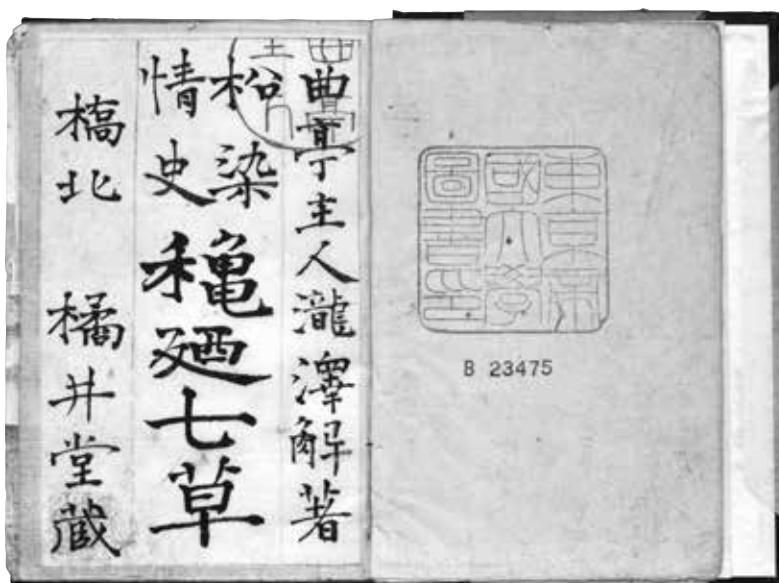 東京帝
國大學
圖書印
B 23475
曲亭主人瀧澤解著
柗染
情史
穐廼七草
槗北 橘井堂蔵